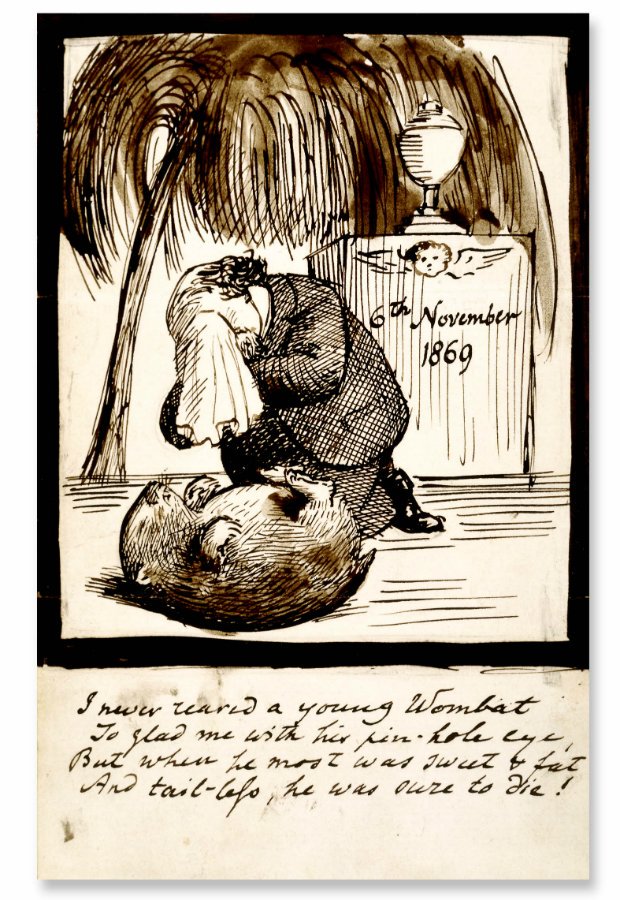 6th November
1869
I never reared a young Wombat
To glad me with his pin-hole eye,
But when he most was sweet & fat
And tail-less, he was sure to die!